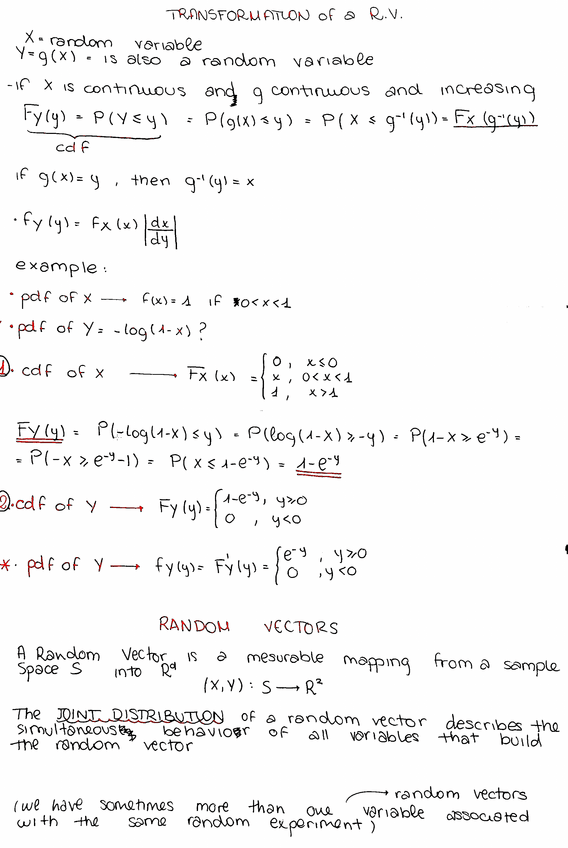 TRANSFORMATION of a R.V.
X = random variable
Y = g(X) = is also a random variable
-if X is continuous and g continuous and increasing
Fy(y) = P(Y ≤ y) = P(g(x) ≤ y) = P(X ≤ g⁻¹(y)) = Fx(g⁻¹(y))
cdf
if g(x) = y , then g⁻¹(y) = x
· fy(y) = fx(x) |dx/dy|
example:
· pdf of X → f(x) = 1 if 0<x<1
· pdf of Y = -log(1-x) ?
1. cdf of X → Fx(x) = { 0, x≤0
x, 0<x<1
1, x>1
Fy(y) = P(-log(1-x) ≤ y) = P(log(1-x) ≥ -y) = P(1-x ≥ e^-y) =
= P(-x ≥ e^-y-1) = P(x ≤ 1-e^-y) = 1-e^-y
2. cdf of Y → Fy(y) = { 1-e^-y, y≥0
0 , y<0
*. pdf of Y → fy(y) = F'y(y) = { e^-y , y≥0
0 , y<0
RANDOM VECTORS
A Random Vector is a mesurable mapping from a sample
Space S into R^d
(X,Y) : S → R²
The JOINT DISTRIBUTION of a random vector describes the
simultaneous behavior of all variables that build
the random vector
→ random vectors
(we have sometimes more than one variable associated
with the same random experiment)